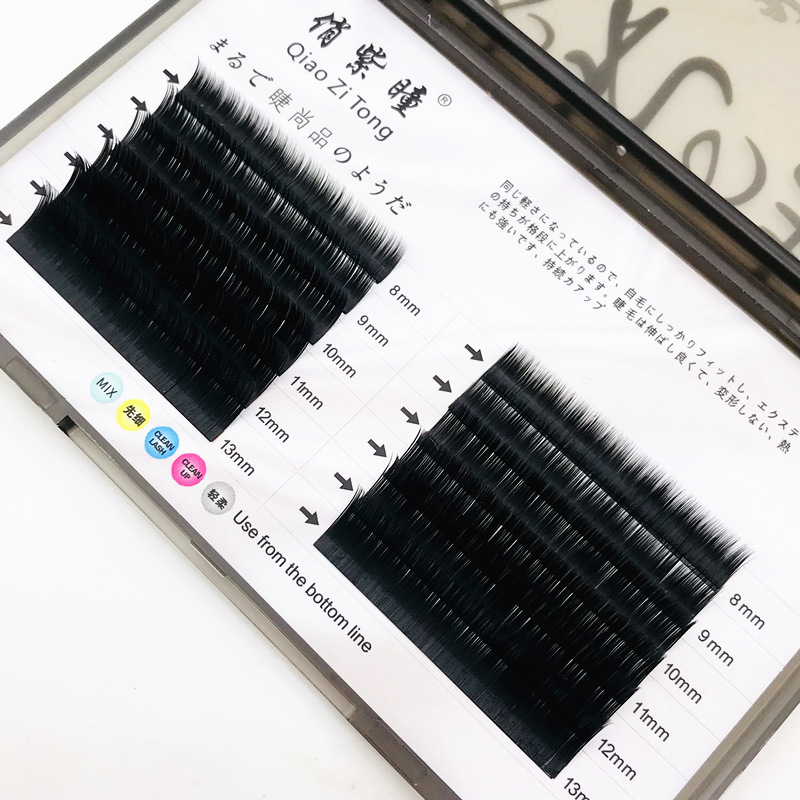 俏紫瞳®
Qiao Zi Tong
まるで睫尚品のようだ
同じ軽さになっているので、自毛にしっかりフィットし、エクステ
の持ちが格段に上がります。睫毛は伸ばし良くて、変形しない、熱
にも強いです、持続力アップ
8mm
9mm
10mm
11mm
12mm
13mm
MIX
先细
CLEAN
LASH
CLEAN
UP
轻柔
Use from the bottom line
8mm
9mm
10mm
11mm
12mm
13m